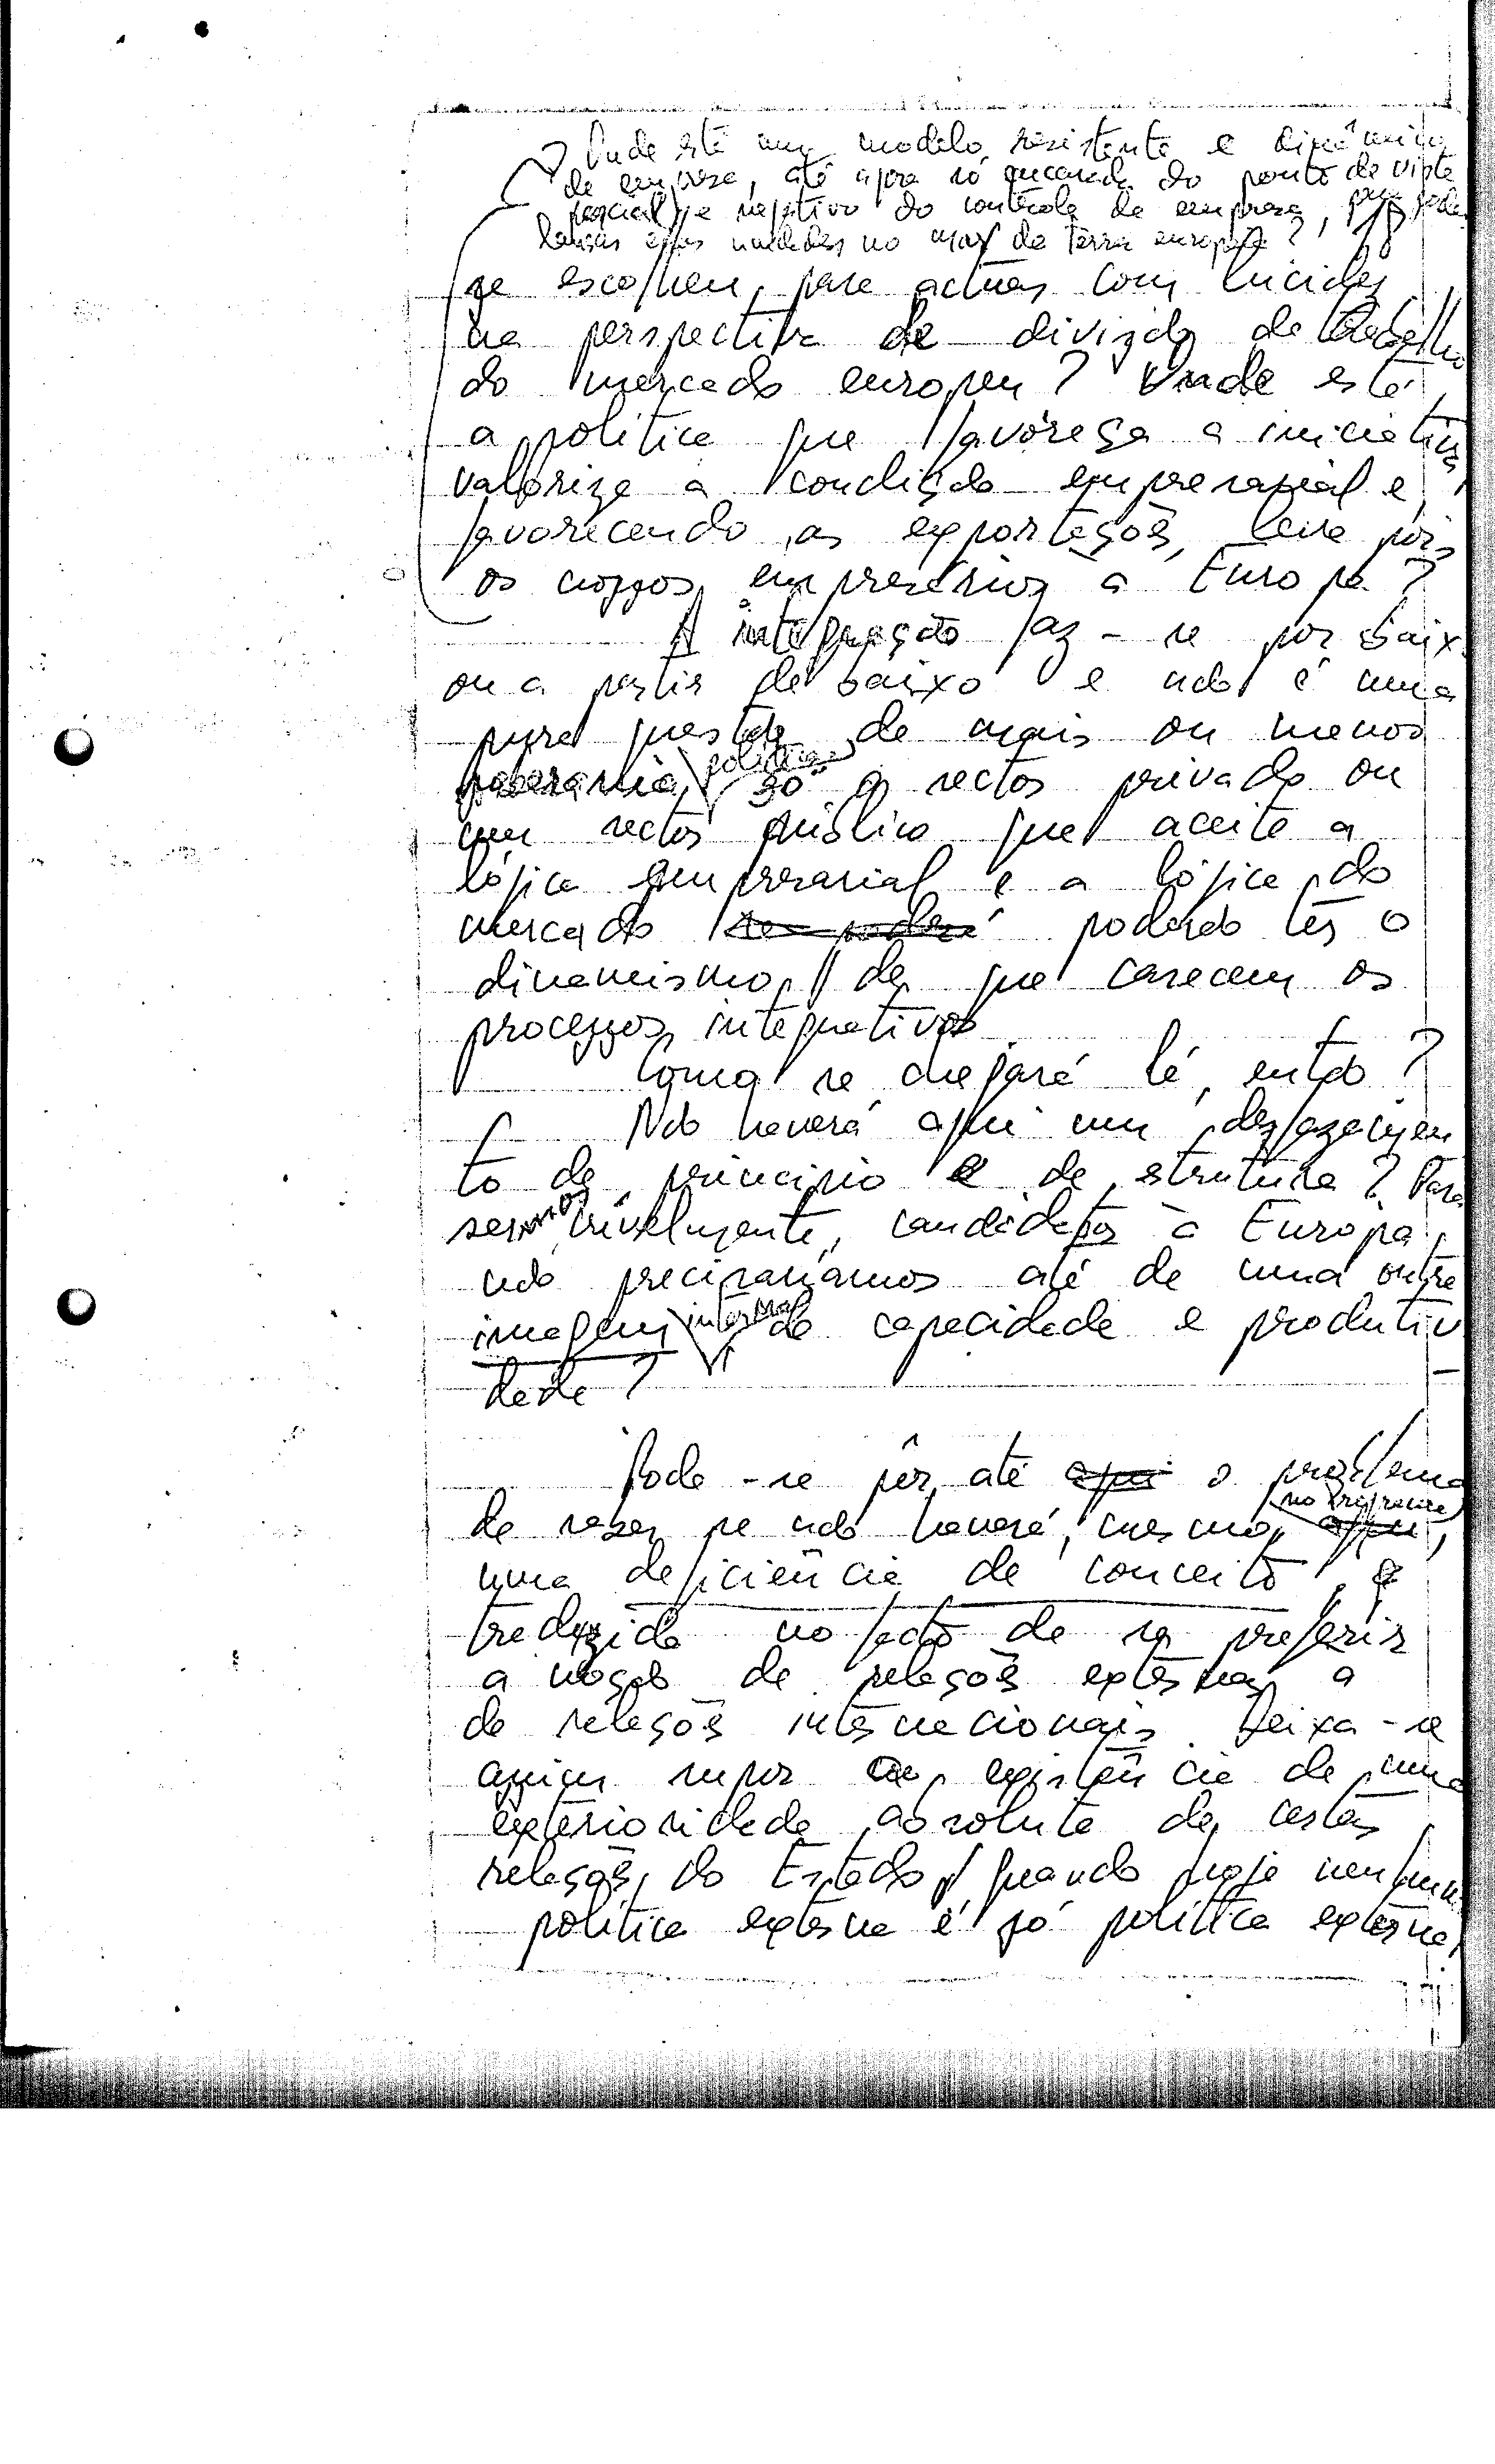 Onde está um modelo resistente e dinâmico
de empresa, até agora só encarada do ponto de vista
parcial e negativo do controle de empresa, para poder
lançar essas unidades no mar da terra europeia?
se escolheu, para actuar com lucidez
na perspectiva de divisão de trabalho
do mercado europeu? Onde está
a política que favoreça a iniciativa,
valorize a condição empresarial e,
favorecendo as exportações, leve por si
os nossos empresários à Europa?
A integração faz-se por baixo
ou a partir de baixo e não é uma
pura questão de mais ou menos
política
só o sector privado ou
um sector público que aceite a
lógica empresarial e a lógica do
mercado se poderá poderão ter o
dinamismo de que carecem os
processos integrativos
Como se chegará lá, então?
Não haverá aqui um desfazamen
to de princípio e de estrutura? Para
sermos, crivelmente, candidatos à Europa,
não precisaríamos até de uma outra
imagem interna de capacidade e produtivi
dade?
Pode-se pôr até aqui o problema
no presente
de saber se não haverá, mesmo, aqui,
uma deficiência de conceito,
traduzida no facto de se preferir
a noção de relações externas a
de relações internacionais. Deixa-se
assim supor a existência de uma
exterioridade absoluta de certas
relações do Estado, quando hoje nenhuma
política externa é só política externa,